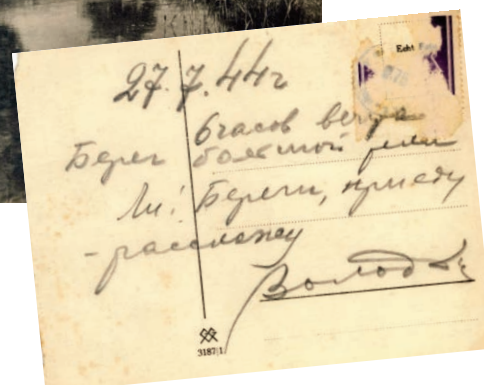 Echt
27.7.44г
6 часов вечера
Берег большой реки
Ли! Береги, приеду
- расскажу
Володя
3187/1